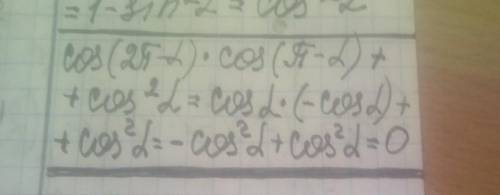 = 1 - sin²α = cos²α
cos(2π-α)·cos(π-α)+
+cos²α = cosα·(-cosα)+
+cos²α = -cos²α+cos²α = 0